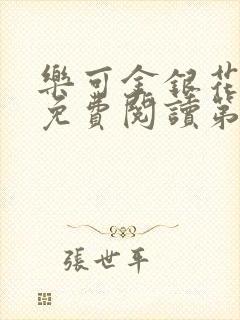 樂可金銀花
免費閱讀第
張世平